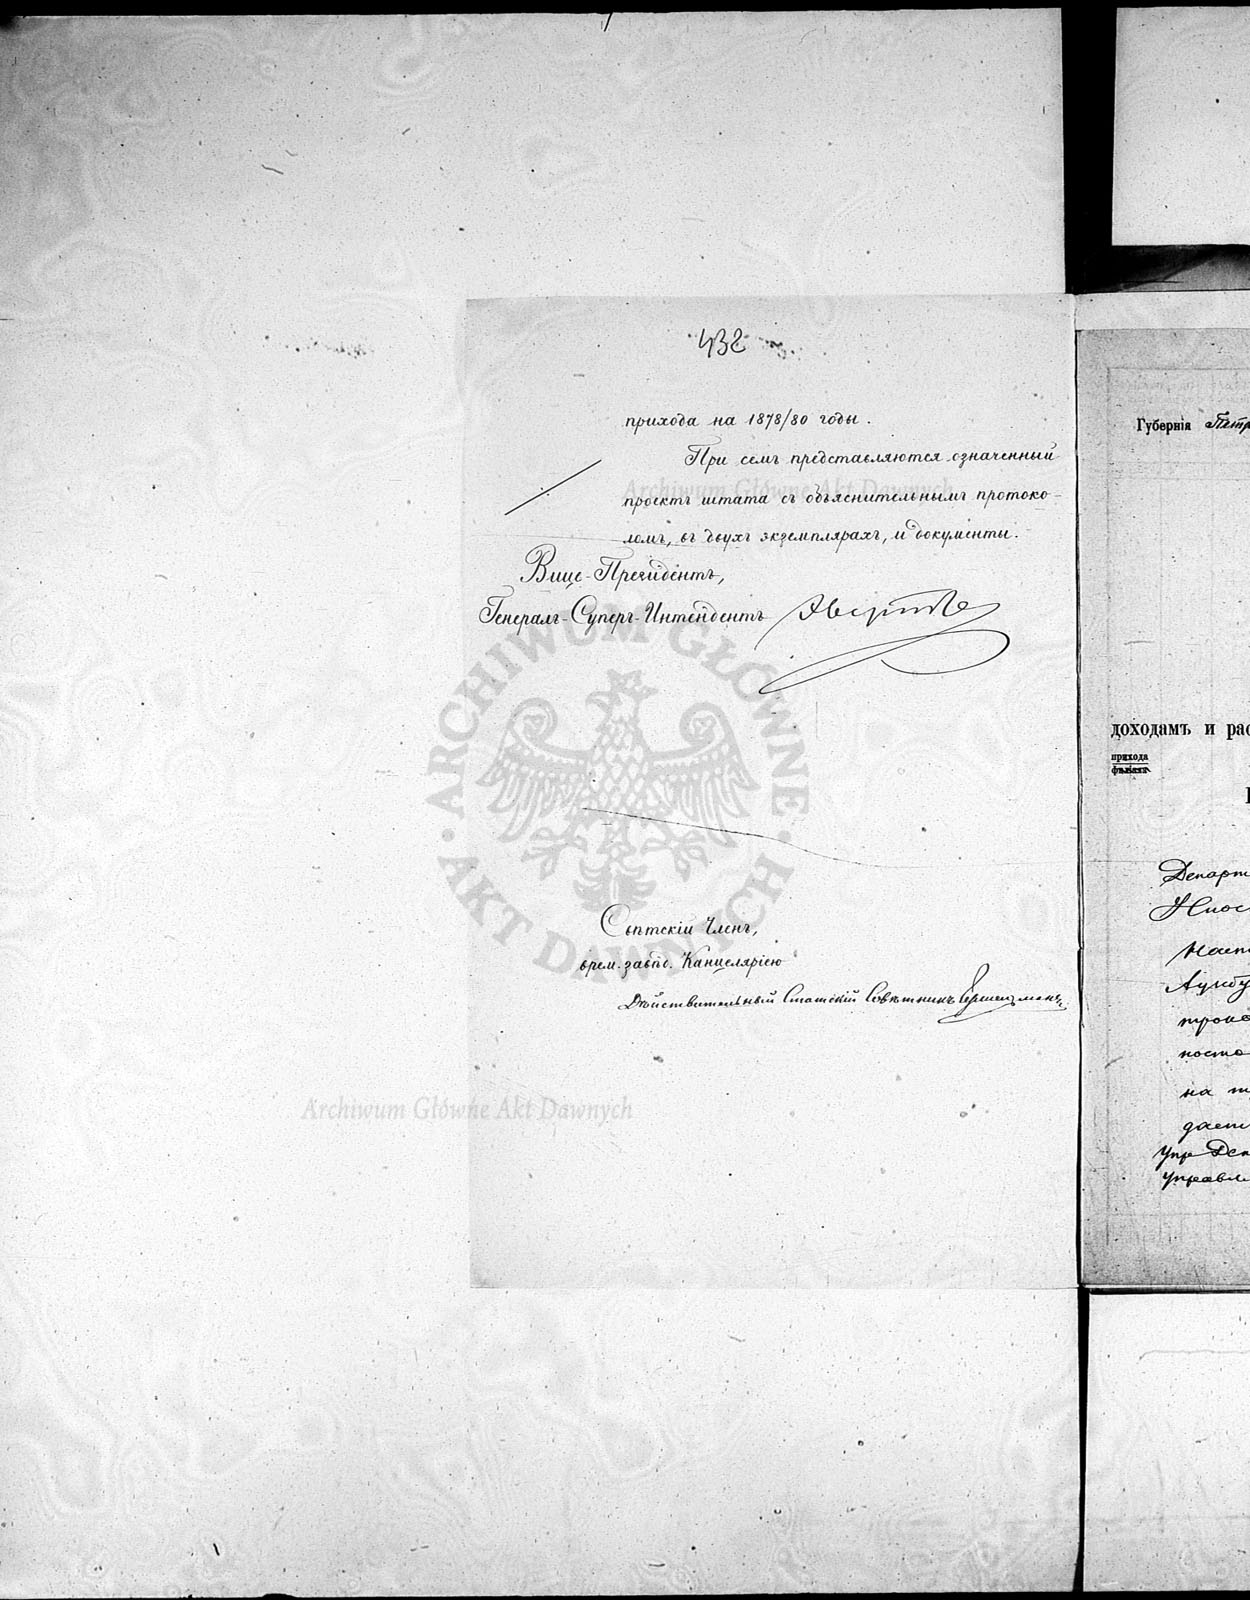 432
прихода на 1878/80 годы.
При семъ представляются означенный
проектъ штата съ объяснительнымъ протоко-
ломъ, въ двухъ экземплярахъ, и документы.
Вице-Президентъ,
Генералъ-Суперъ-Интендентъ
Свѣтскій Членъ,
врем. завѣд. Канцеляріею
Дѣйствительный Статскій Совѣтникъ
Archiwum Główne Akt Dawnych
ARCHIWUM GŁÓWNE AKT DAWNYCH
Archiwum Główne Akt Dawnych
Губернія Петр
доходамъ и рас
прихода
Департ
Наст
на
дает
упр Деп
управле